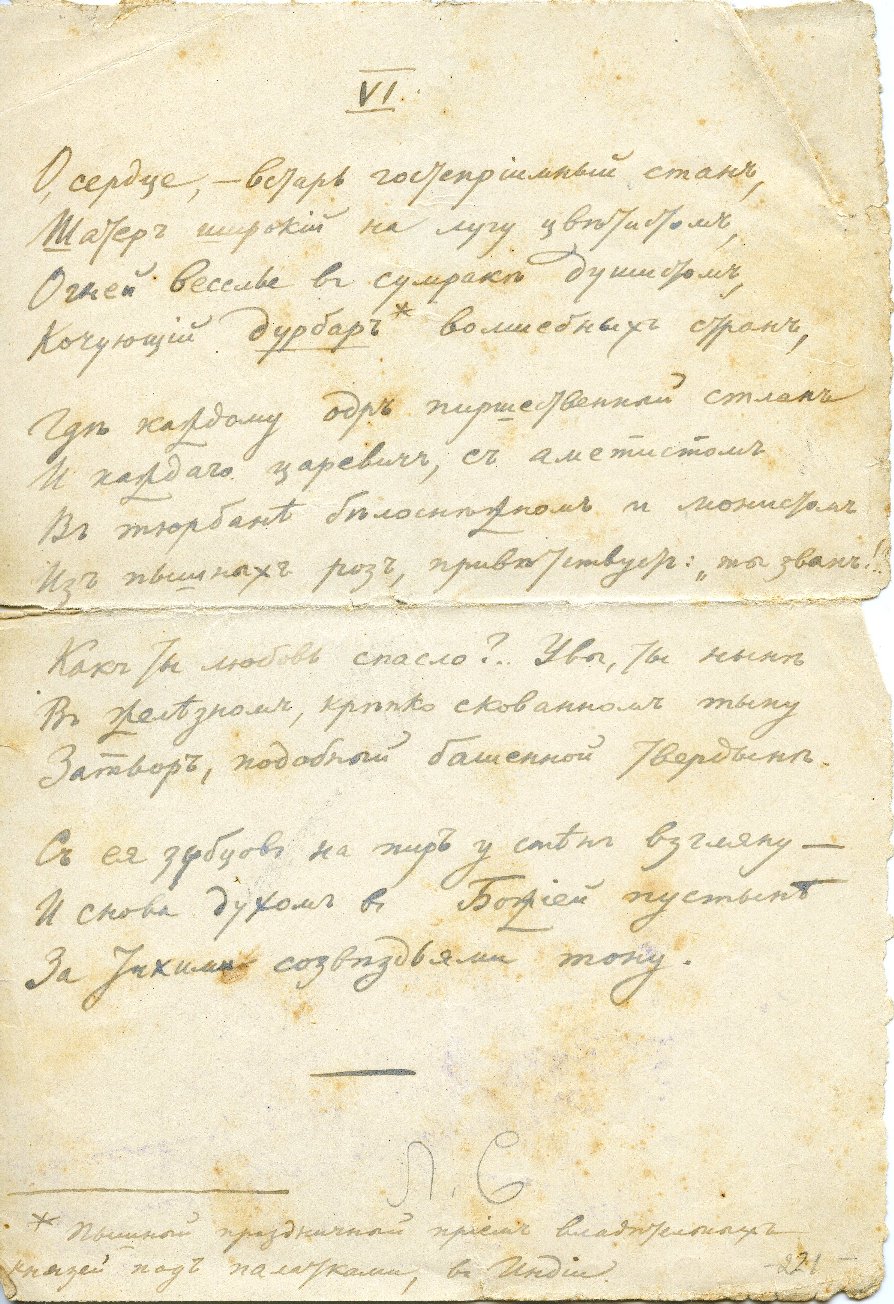 VI.
О, сердце, – встарь гостепріимный станъ,
Шатеръ широкій на лугу цвѣтистомъ,
Огней веселье въ сумракѣ душистомъ,
Кочующій дурбаръ* волшебныхъ странъ,
Гдѣ каждому одръ пиршественный стланъ
И каждаго царевичъ, съ аметистомъ
Въ тюрбанѣ бѣлоснѣжномъ и монистомъ
Изъ пышныхъ розъ, привѣтствуетъ: „ты званъ!"
Какъ ты любовь спасло?.. Увы, ты нынѣ
Въ желѣзномъ, крѣпко скованномъ тыну
Затворъ, подобный башенной твердынѣ.
Съ ея зубцовъ на пиръ у стѣнъ взгляну –
И снова духомъ въ Божіей пустынѣ
За тихими созвѣздьями тону.
Л. С
* Пышный праздничный пріемъ владѣтельныхъ
князей подъ палатками, въ Индіи.
-221-